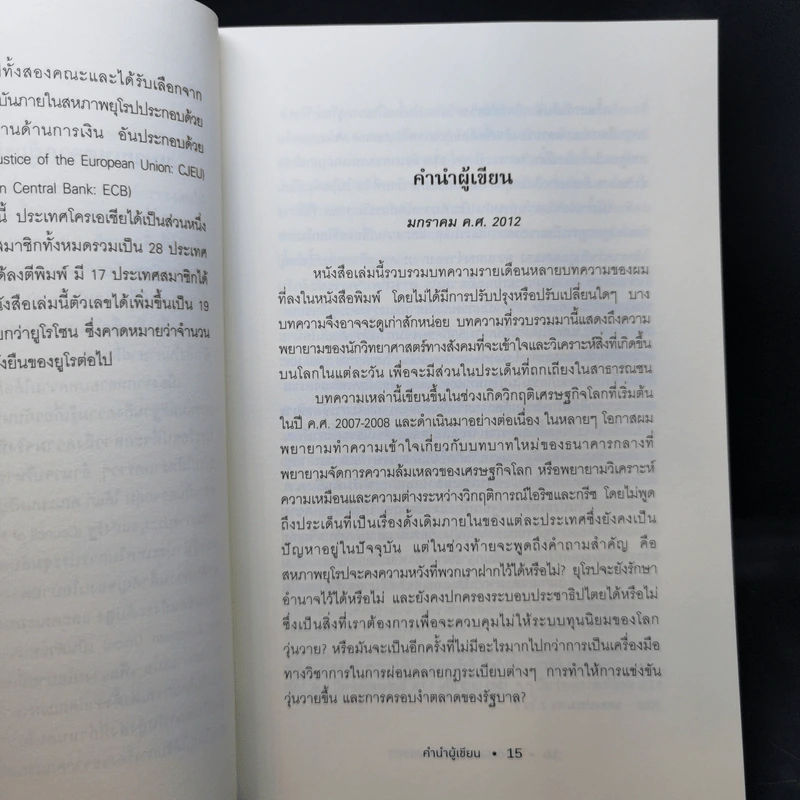 ทั้งสองคณะและได้รับเลือกจาก
บันภายในสหภาพยุโรปประกอบด้วย
านด้านการเงิน อันประกอบด้วย
ustice of the European Union: CJEU)
n Central Bank: ECB)
นี้ ประเทศโครเอเชียได้เป็นส่วนหนึ่ง
สมาชิกทั้งหมดรวมเป็น 28 ประเทศ
ด้ลงตีพิมพ์ มี 17 ประเทศสมาชิกได้
งสือเล่มนี้ตัวเลขได้เพิ่มขึ้นเป็น 19
ยกว่ายูโรโซน ซึ่งคาดหมายว่าจำนวน
งยืนของยูโรต่อไป
คำนำผู้เขียน
มกราคม ค.ศ. 2012
หนังสือเล่มนี้รวบรวมบทความรายเดือนหลายบทความของผม
ที่ลงในหนังสือพิมพ์ โดยไม่ได้มีการปรับปรุงหรือปรับเปลี่ยนใดๆ บาง
บทความจึงอาจจะดูเก่าสักหน่อย บทความที่รวบรวมมานี้แสดงถึงความ
พยายามของนักวิทยาศาสตร์ทางสังคมที่จะเข้าใจและวิเคราะห์สิ่งที่เกิดขึ้น
บนโลกในแต่ละวัน เพื่อจะมีส่วนในประเด็นที่ถกเถียงในสาธารณชน
บทความเหล่านี้เขียนขึ้นในช่วงเกิดวิกฤติเศรษฐกิจโลกที่เริ่มต้น
ในปี ค.ศ. 2007-2008 และดำเนินมาอย่างต่อเนื่อง ในหลายๆ โอกาสผม
พยายามทำความเข้าใจเกี่ยวกับบทบาทใหม่ของธนาคารกลางที่
พยายามจัดการความล้มเหลวของเศรษฐกิจโลก หรือพยายามวิเคราะห์
ความเหมือนและความต่างระหว่างวิกฤติการณ์ไอริชและกรีซ โดยไม่พูด
ถึงประเด็นที่เป็นเรื่องดั้งเดิมภายในของแต่ละประเทศซึ่งยังคงเป็น
ปัญหาอยู่ในปัจจุบัน แต่ในช่วงท้ายจะพูดถึงคำถามสำคัญ คือ
สหภาพยุโรปจะคงความหวังที่พวกเราฝากไว้ได้หรือไม่? ยุโรปจะยังรักษา
อำนาจไว้ได้หรือไม่ และยังคงปกครองระบอบประชาธิปไตยได้หรือไม่
ซึ่งเป็นสิ่งที่เราต้องการเพื่อจะควบคุมไม่ให้ระบบทุนนิยมของโลก
วุ่นวาย? หรือมันจะเป็นอีกครั้งที่ไม่มีอะไรมากไปกว่าการเป็นเครื่องมือ
ทางวิชาการในการผ่อนคลายกฎระเบียบต่างๆ การทำให้การแข่งขัน
วุ่นวายขึ้น และการครอบงำตลาดของรัฐบาล?
คำนำผู้เขียน • 15